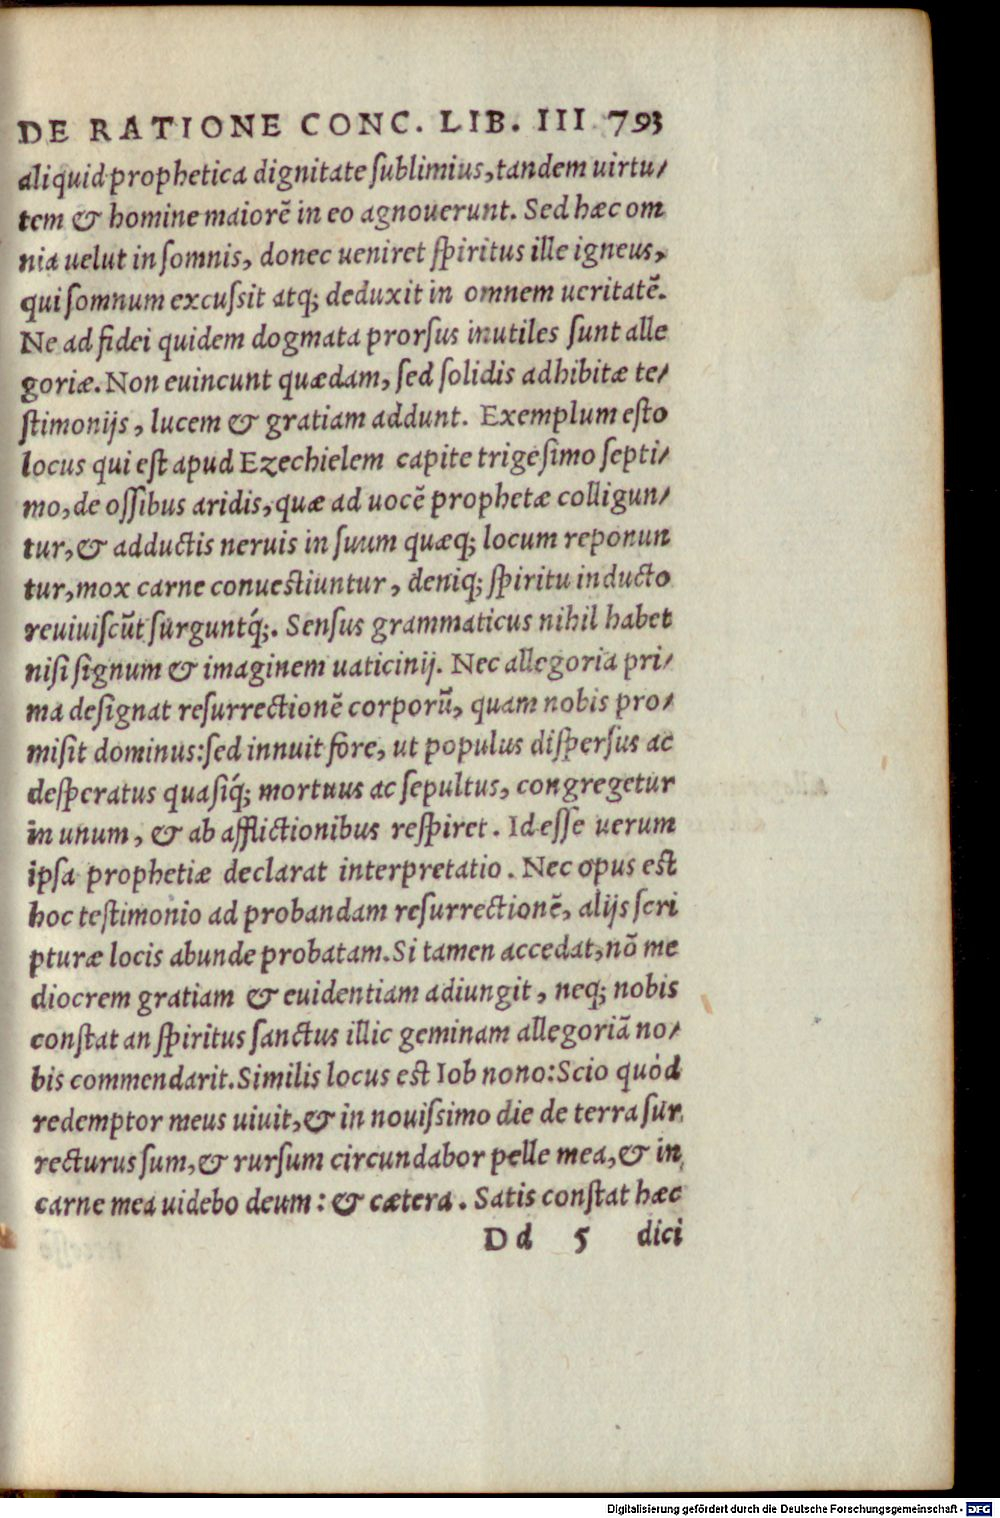 DE RATIONE CONC. LIB. III 793
aliquid prophetica dignitate ſublimius, tandem uirtu/
tem & homine maiorē in eo agnouerunt. Sed hæc om
nia uelut in ſomnis, donec ueniret ſpiritus ille igneus,
qui ſomnum excuſsit atq; deduxit in omnem ueritatē.
Ne ad fidei quidem dogmata prorſus inutiles ſunt alle
goriæ. Non euincunt quædam, ſed ſolidis adhibitæ te/
ſtimonijs, lucem & gratiam addunt. Exemplum eſto
locus qui eſt apud Ezechielem capite trigeſimo ſepti/
mo, de oſſibus aridis, quæ ad uocē prophetæ colligun/
tur, & adductis neruis in ſuum quæq; locum reponun
tur, mox carne conueſtiuntur, deniq; ſpiritu inducto
reuiuiſcūt ſurguntq́;. Senſus grammaticus nihil habet
niſi ſignum & imaginem uaticinij. Nec allegoria pri/
ma deſignat reſurrectionē corporū, quam nobis pro/
miſit dominus: ſed innuit fore, ut populus diſperſus ac
deſperatus quaſiq́; mortuus ac ſepultus, congregetur
in unum, & ab afflictionibus reſpiret. Id eſſe uerum
ipſa prophetiæ declarat interpretatio. Nec opus eſt
hoc teſtimonio ad probandam reſurrectionē, alijs ſcri
pturæ locis abunde probatam. Si tamen accedat, nō me
diocrem gratiam & euidentiam adiungit, neq; nobis
conſtat an ſpiritus ſanctus illic geminam allegoriā no/
bis commendarit. Similis locus eſt Iob nono: Scio quòd
redemptor meus uiuit, & in nouiſsimo die de terra ſur
recturus ſum, & rurſum circundabor pelle mea, & in
carne mea uidebo deum: & cætera. Satis conſtat hæc
Dd 5 dici
Digitalisierung gefördert durch die Deutsche Forschungsgemeinschaft - DFG